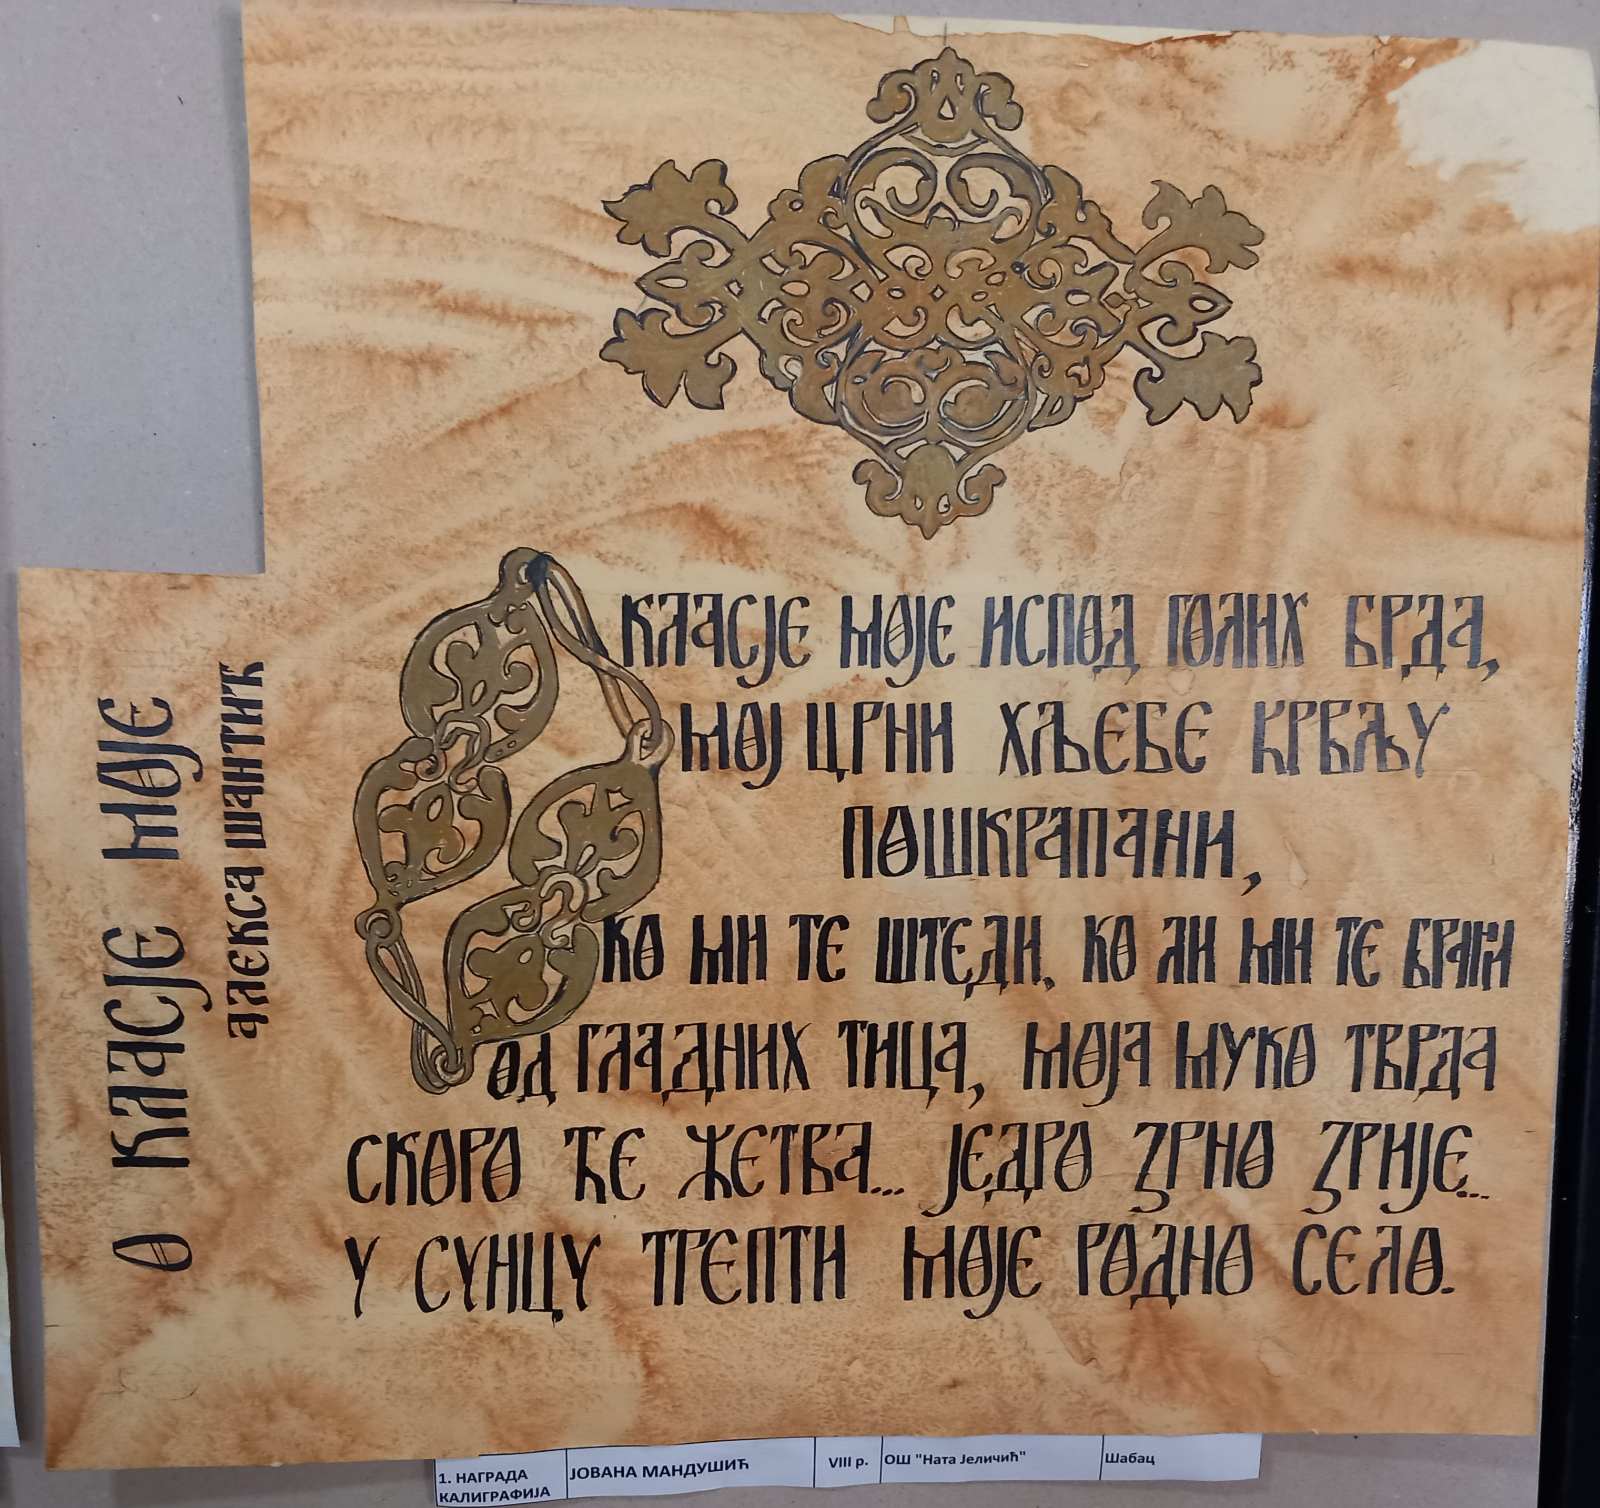 О КЛАСЈЕ МОЈЕ
АЛЕКСА ШАНТИЋ
О КЛАСЈЕ МОЈЕ ИСПОД ГОЛИХ БРДА,
МОЈ ЦРНИ ХЉЕБЕ КРВЉУ
ПОШКРАПАНИ,
КО МИ ТЕ ШТЕДИ, КО ЛИ МИ ТЕ БРАНИ
ОД ГЛАДНИХ ТИЦА, МОЈА МУКО ТВРДА
СКОРО ЋЕ ЖЕТВА... ЈЕДРО ЗРНО ЗРИЈЕ...
У СУНЦУ ТРЕПТИ МОЈЕ РОДНО СЕЛО.
1. НАГРАДА КАЛИГРАФИЈА
ЈОВАНА МАНДУШИЋ
VIII р.
ОШ "Ната Јеличић"
Шабац